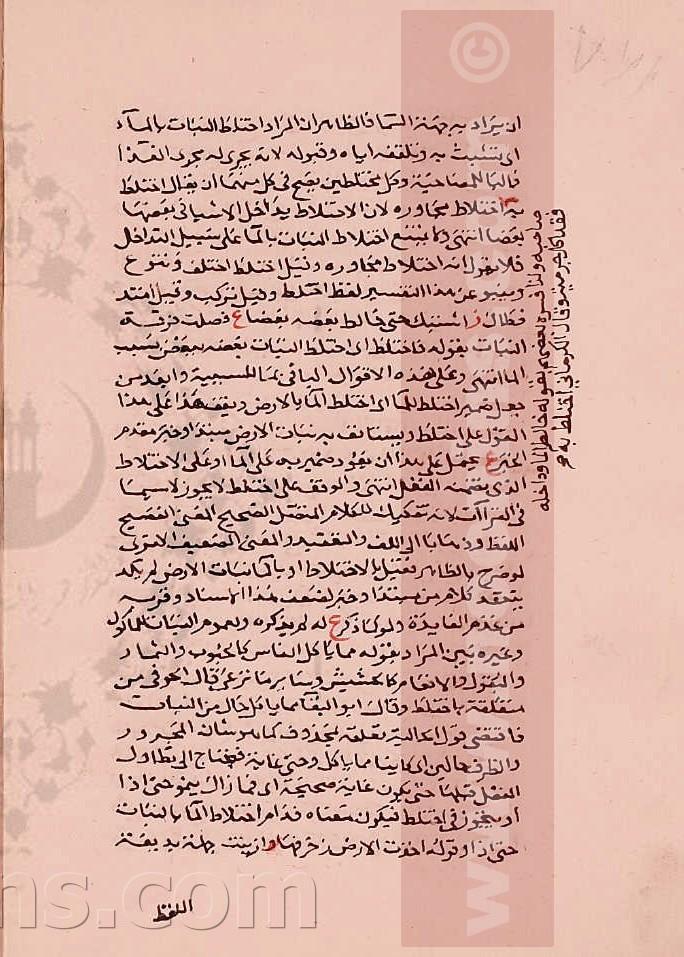 ان يراد به جهة السما فالظاهر ان المراد اختلط النبات بالماء
اى تشبث به وتلقفه اياه وقبوله لانه يجرى له مجرى الغذا
فالباء للمصاحبة وكل مختلطين يصح فى كل منهما ان يقال اختلط
به اختلاط مجاوره لان الاختلاط تداخل الاشيا فى بعضها
بعضا انتهى ولا يمتنع اختلاط النبات بالما على سبيل التداخل
فلا نقول انه اختلاط مجاوره وقيل اختلط اختلف وتنوع
وينبو عن هذا التفسير لفظ اختلط وقيل تركب وقيل امتد
فطال ز اشتبك حتى خالط بعضه بعضا ع فصلت فرقة
النبات بقوله فاختلط اى اختلط النبات بعضه ببعض بسبب
الما انتهى وعلى هذه الاقوال البا فى بما للسببية وابعد من
جعل ضمير اختلط للما اى اختلط الما بالارض ويقف هذا على هذا
القول على اختلط ويستانف به نبات الارض مبتدا وخبر مقدم
الخبر ع يحتمل على هذا ان يعود ضمير به على الما وعلى الاختلاط
الذى يتضمنه الفعل انتهى والوقف على اختلط لا يجوز لاسيما
فى القران لانه تفكيك للكلام المتصل الصحيح المعنى الفصيح
اللفظ وذهابا الى اللغز والتعقيد والمعنى الضعيف الا ترى
لو صرح بالظاهر فقيل بالاختلاط او بالما نبات الارض لم يكد
ينعقد كلام من مبتدا وخبر لضعف هذا الاسناد وقربه
من عدم الفايدة ولولا ذكر ع له لم نذكره ولعموم النبات للماكول
وغيره بين المراد بقوله مما ياكل الناس كالحبوب والثمار
والبقول والانعام كالحشيش وساير ما ترعى قال الحوفى من
متعلقة باختلط وقال ابو البقا مما ياكل حال من النبات
فاقتضى قول الحالية تعلقه بمحذوف كما هو شان المجرور
والظرف حالين اى كاينا مما ياكل وحتى غاية فيحتاج الى تطاول
الفعل قبلها حتى يكون غاية صحيحة اى فما زال ينمو حتى اذا
او يتجوز فى اختلط فيكون معناه فدام اختلاط الما بالنبات
حتى اذا وقوله اخذت الارض زخرفها وازينت جملة بديعة
اللفظ
صاحبه ولذا فسره بعضهم بقوله خالط الما وداخله
وقال الكرمانى اختلط به
www
ns.com
©